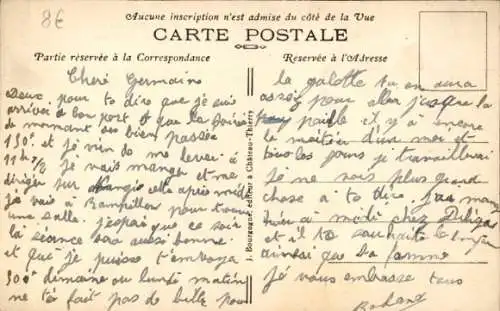 8€
Aucune inscription n'est admise du côté de la Vue
CARTE POSTALE
Partie réservée à la Correspondance
Réservée à l'Adresse
Cheré Germaine
Deux pour te dire que je suis
arrivé a bon port et que la soirée
de manant ses bien passée
130f et je vien de me lever à
11h 1/2 je vais manger et me
diriger sur après midi
je vais à Rampillon pour
une salle. j'espai que ce soir
la séance sera aussi bonne
et que je puisse t'envoya
300f dimanche ou lundi matin
ne te fait pas de bille pour
J. Bourgogne, éditeur à Château-Thierry
la galotte tu en aura
assez pour aller jusque la
paille il y a encore
la moitiée d'un moi et
tous les jours je travaillerai
je ne vois plus grand
chose a te dire. j'ai mangé
à midi chez
et il te souhaite le bonjour
ainsi que sa famme
jé vous embrasse tous